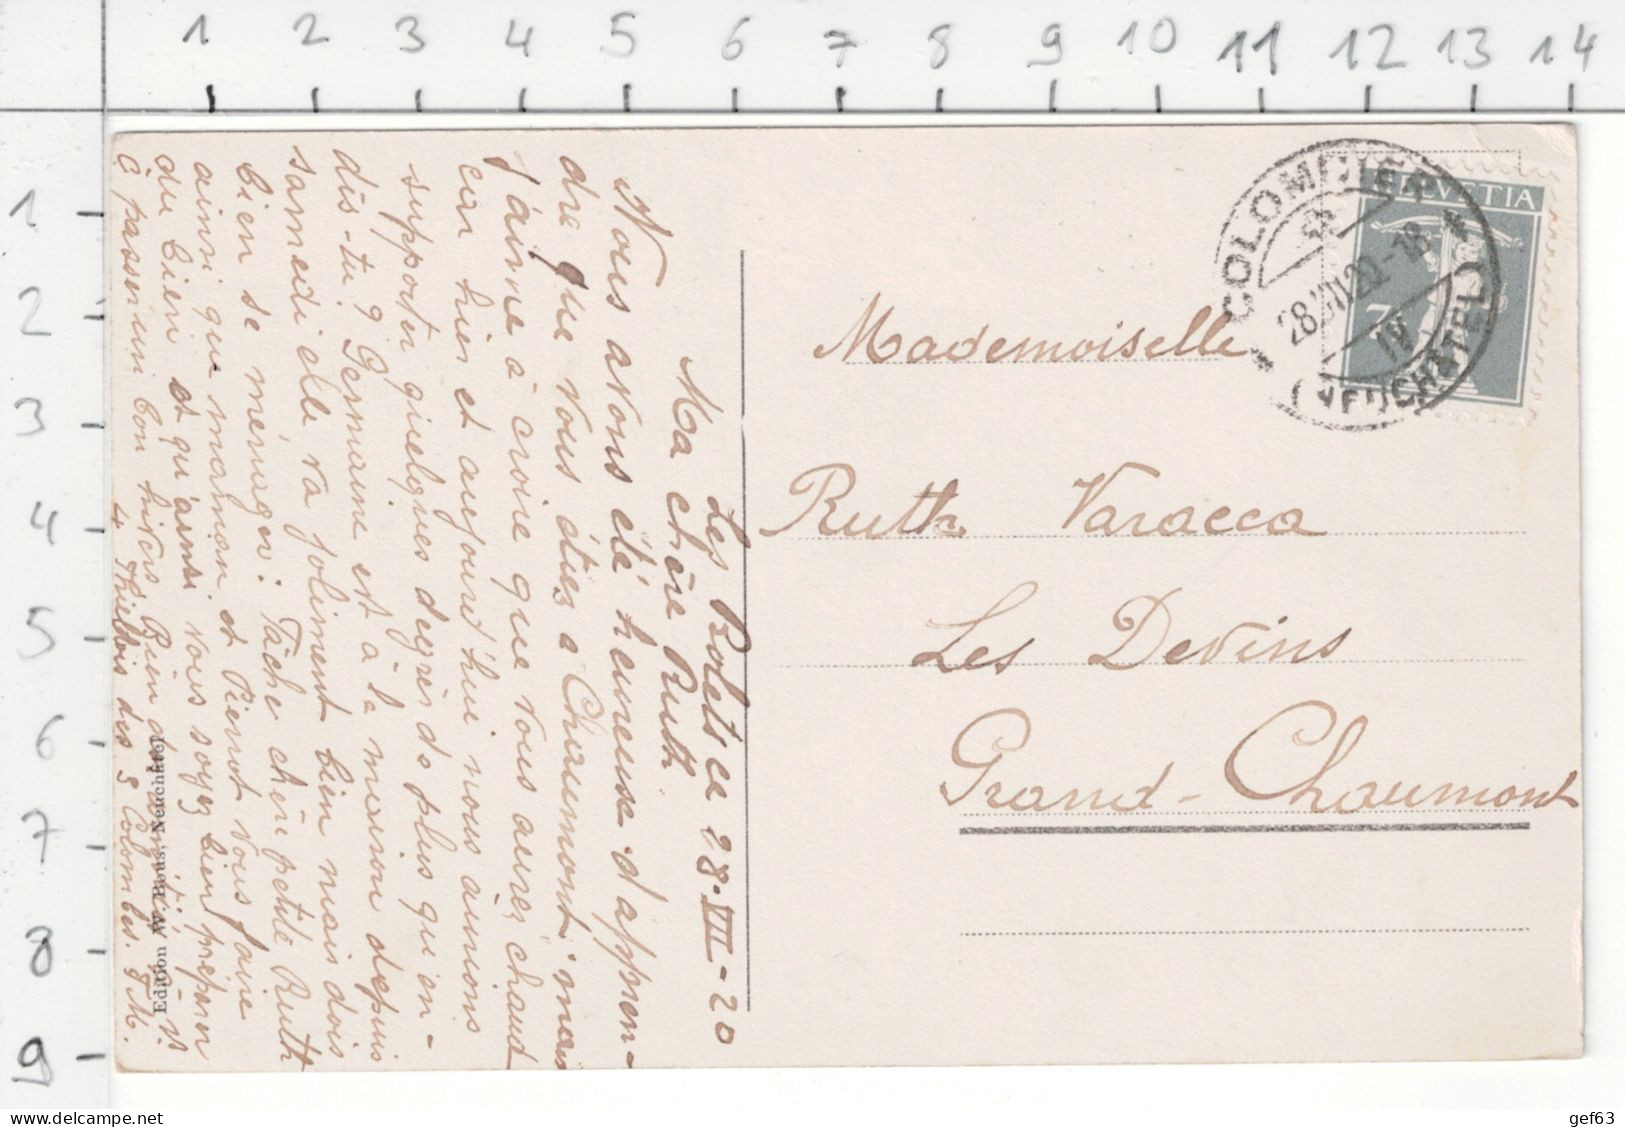 1 2 3 4 5 6 7 8 9 10 11 12 13 14
1
2
3
4
5
6
7
8
9
Les Bolets ce 28-VII-20
Ma chère Ruth
Nous avons été heureuse d'appren-
dre que vous êtes a Chaumont mais
j'ainne à croire que vous aurez chaud
car hier et aujourd'hui nous aurions
supporter quelques degrés de plus qu'en-
dis-tu? Germaine est à la maison depuis
samedi elle va joliment bien mais dois
bien se ménager: Tâche chère petite Ruth
ainsi que maman et Pierrot vous faire
du bien et qu'ainsi vous soyez bien préparer
à passer un bon hivers. Bien des amitiés à v.
4 des 3 Colombes. T.M.
Edition W. Bous, Neuchâtel
HELVETIA
7½
COLOMBIER
28.VII.20.-18
IV
(NEUCHÂTEL)
Mademoiselle
Ruth Varacca
Les Devins
Grand-Chaumont
www.delcampe.net
gef63